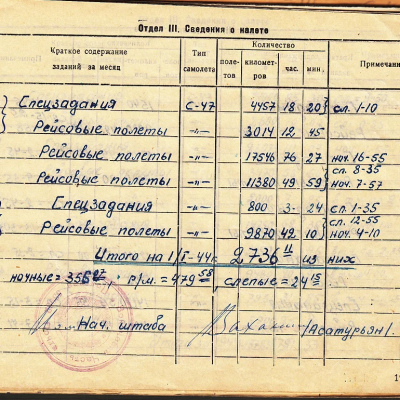 Отдел III. Сведения о налете
Краткое содержание заданий за месяц
Тип самолета
Количество
полетов
километров
час.
мин.
Примечани
Спецзадания С-47 4457 18 20 сл. 1-10
Рейсовые полеты -"- 3014 12 45
Рейсовые полеты -"- 17546 76 27 ноч. 16-55
сл. 8-35
Рейсовые полеты -"- 11380 49 59 ноч. 7-57
Спецзадания -"- 800 3- 24 сл. 1-35
сл. 12-55
Рейсовые полеты -"- 9870 42 10 ноч. 4-10
Итого на 1/I-44г. 2736 11 из них
ночные = 356 27 р/м. = 479 58, слепые = 24 15
Нач. штаба /Асатурьян/.